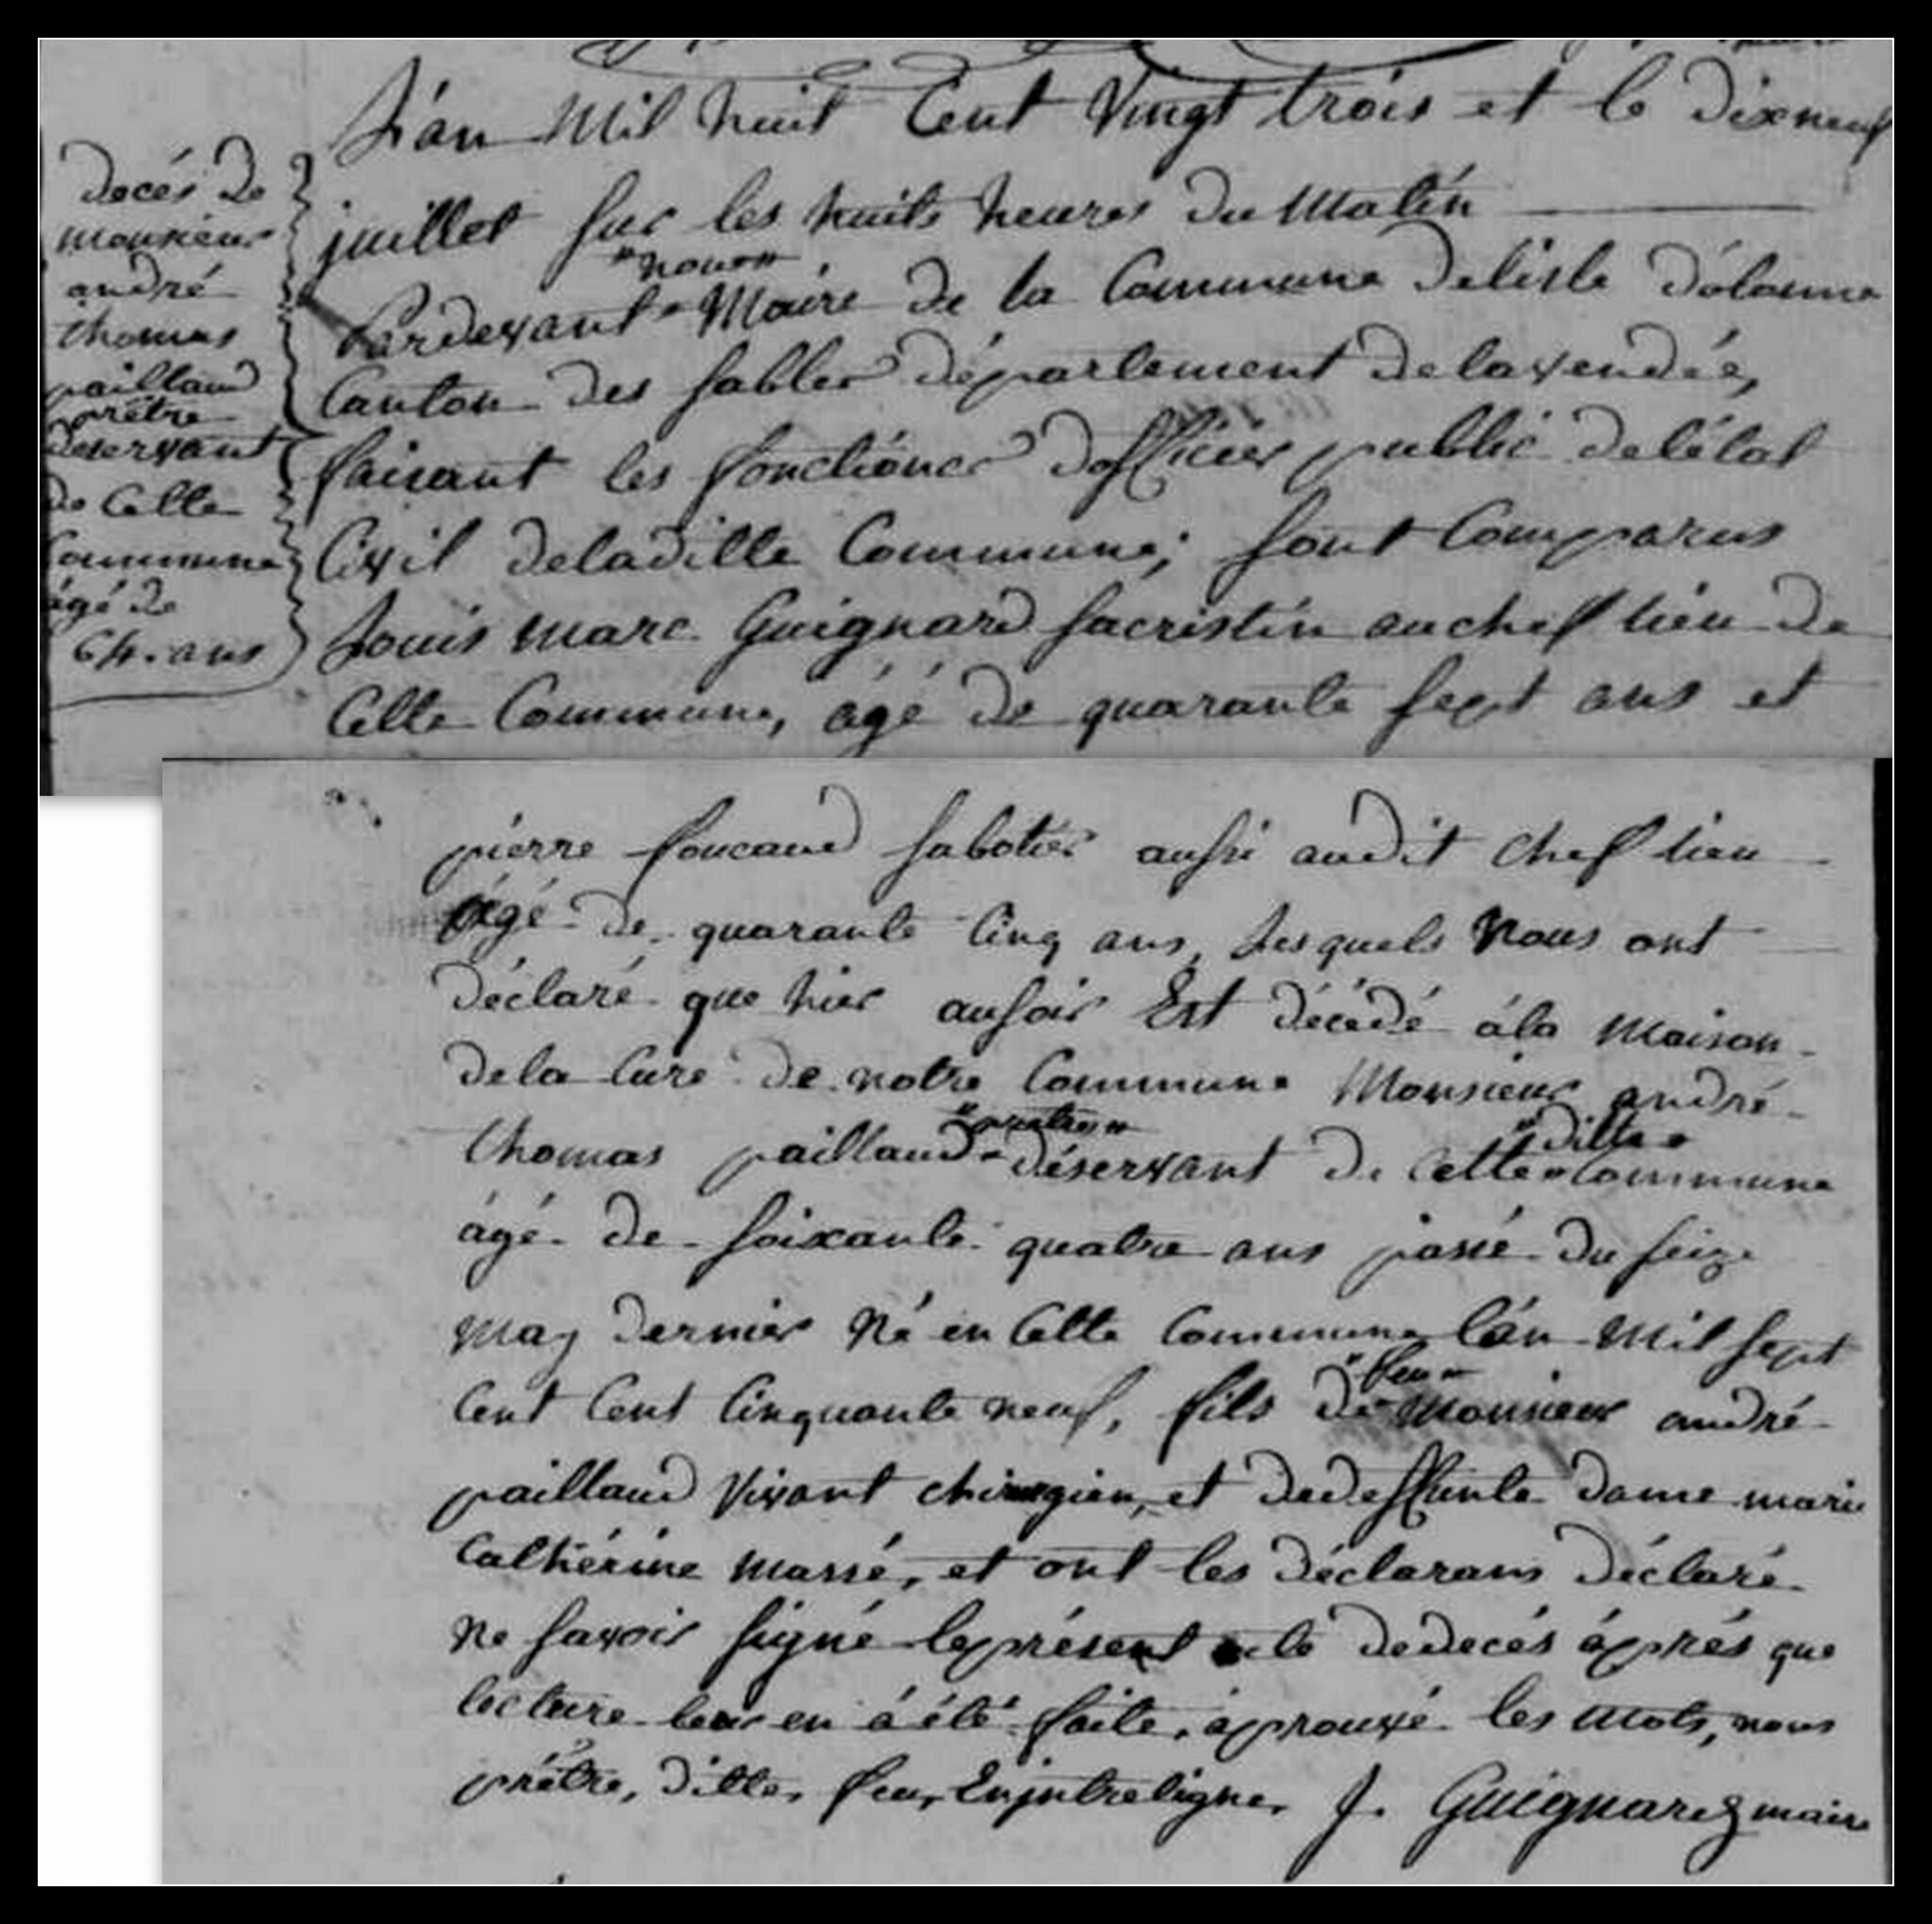 décés de
monsieur
andré
thomas
paillaud
prêtre
deservant
de Cette
Commune
âgé de
64. ans
L'an Mil huit Cent Vingt trois et le dixneuf
juillet sur les huits heures du Matin
"nous"
Pardevant Maire de la Commune delisle dólonne
Canton des sables département delavendée,
faisant les fonctiónes dofficier public delétat
Civil deladitte Commune; sont Comparus
Louis marc Guignard sacristin auchef lieu de
Cette Commune, âgé de quarante sept ans et
pierre foucaud sabotier aussi audit chef lieu
âgé de quarante Cinq ans, Lesquels Nous ont
déclaré que hier ausoir Est décédé ála maison
dela Cure de notre Commune Monsieur andré
"prêtre" "ditte"
thomas paillaud déservant de Cette Commune
ágé de soixante quatre ans passé du seize
may dernier Né en Cette Commune L'án Mil sept
"feu"
Cent Cent Cinquante neuf, fils de Monsieur andré
paillaud Vivant chirurgien, et dedeffunte dame marie
Cathérine massé, et ont les déclarans déclaré
Ne savoir signé leprésent acte dedecés áprés que
lecture leur en á été faite, áprouvé les mots, nous
prêtre, ditte, feu, Enjntreligne, J. Guignard maire